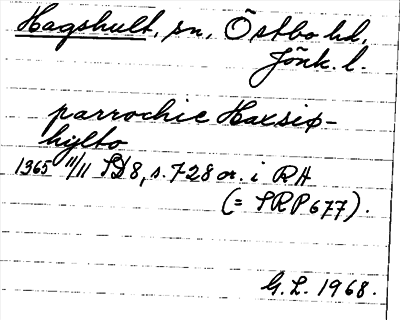 Hagshult, sn, Östbo hd,
Jönk. l.
parrochie Haxsiø-
hylto
1365 11/11 SD8, s. 728 or. i RA
(= SRP 677).
G. L. 1968.